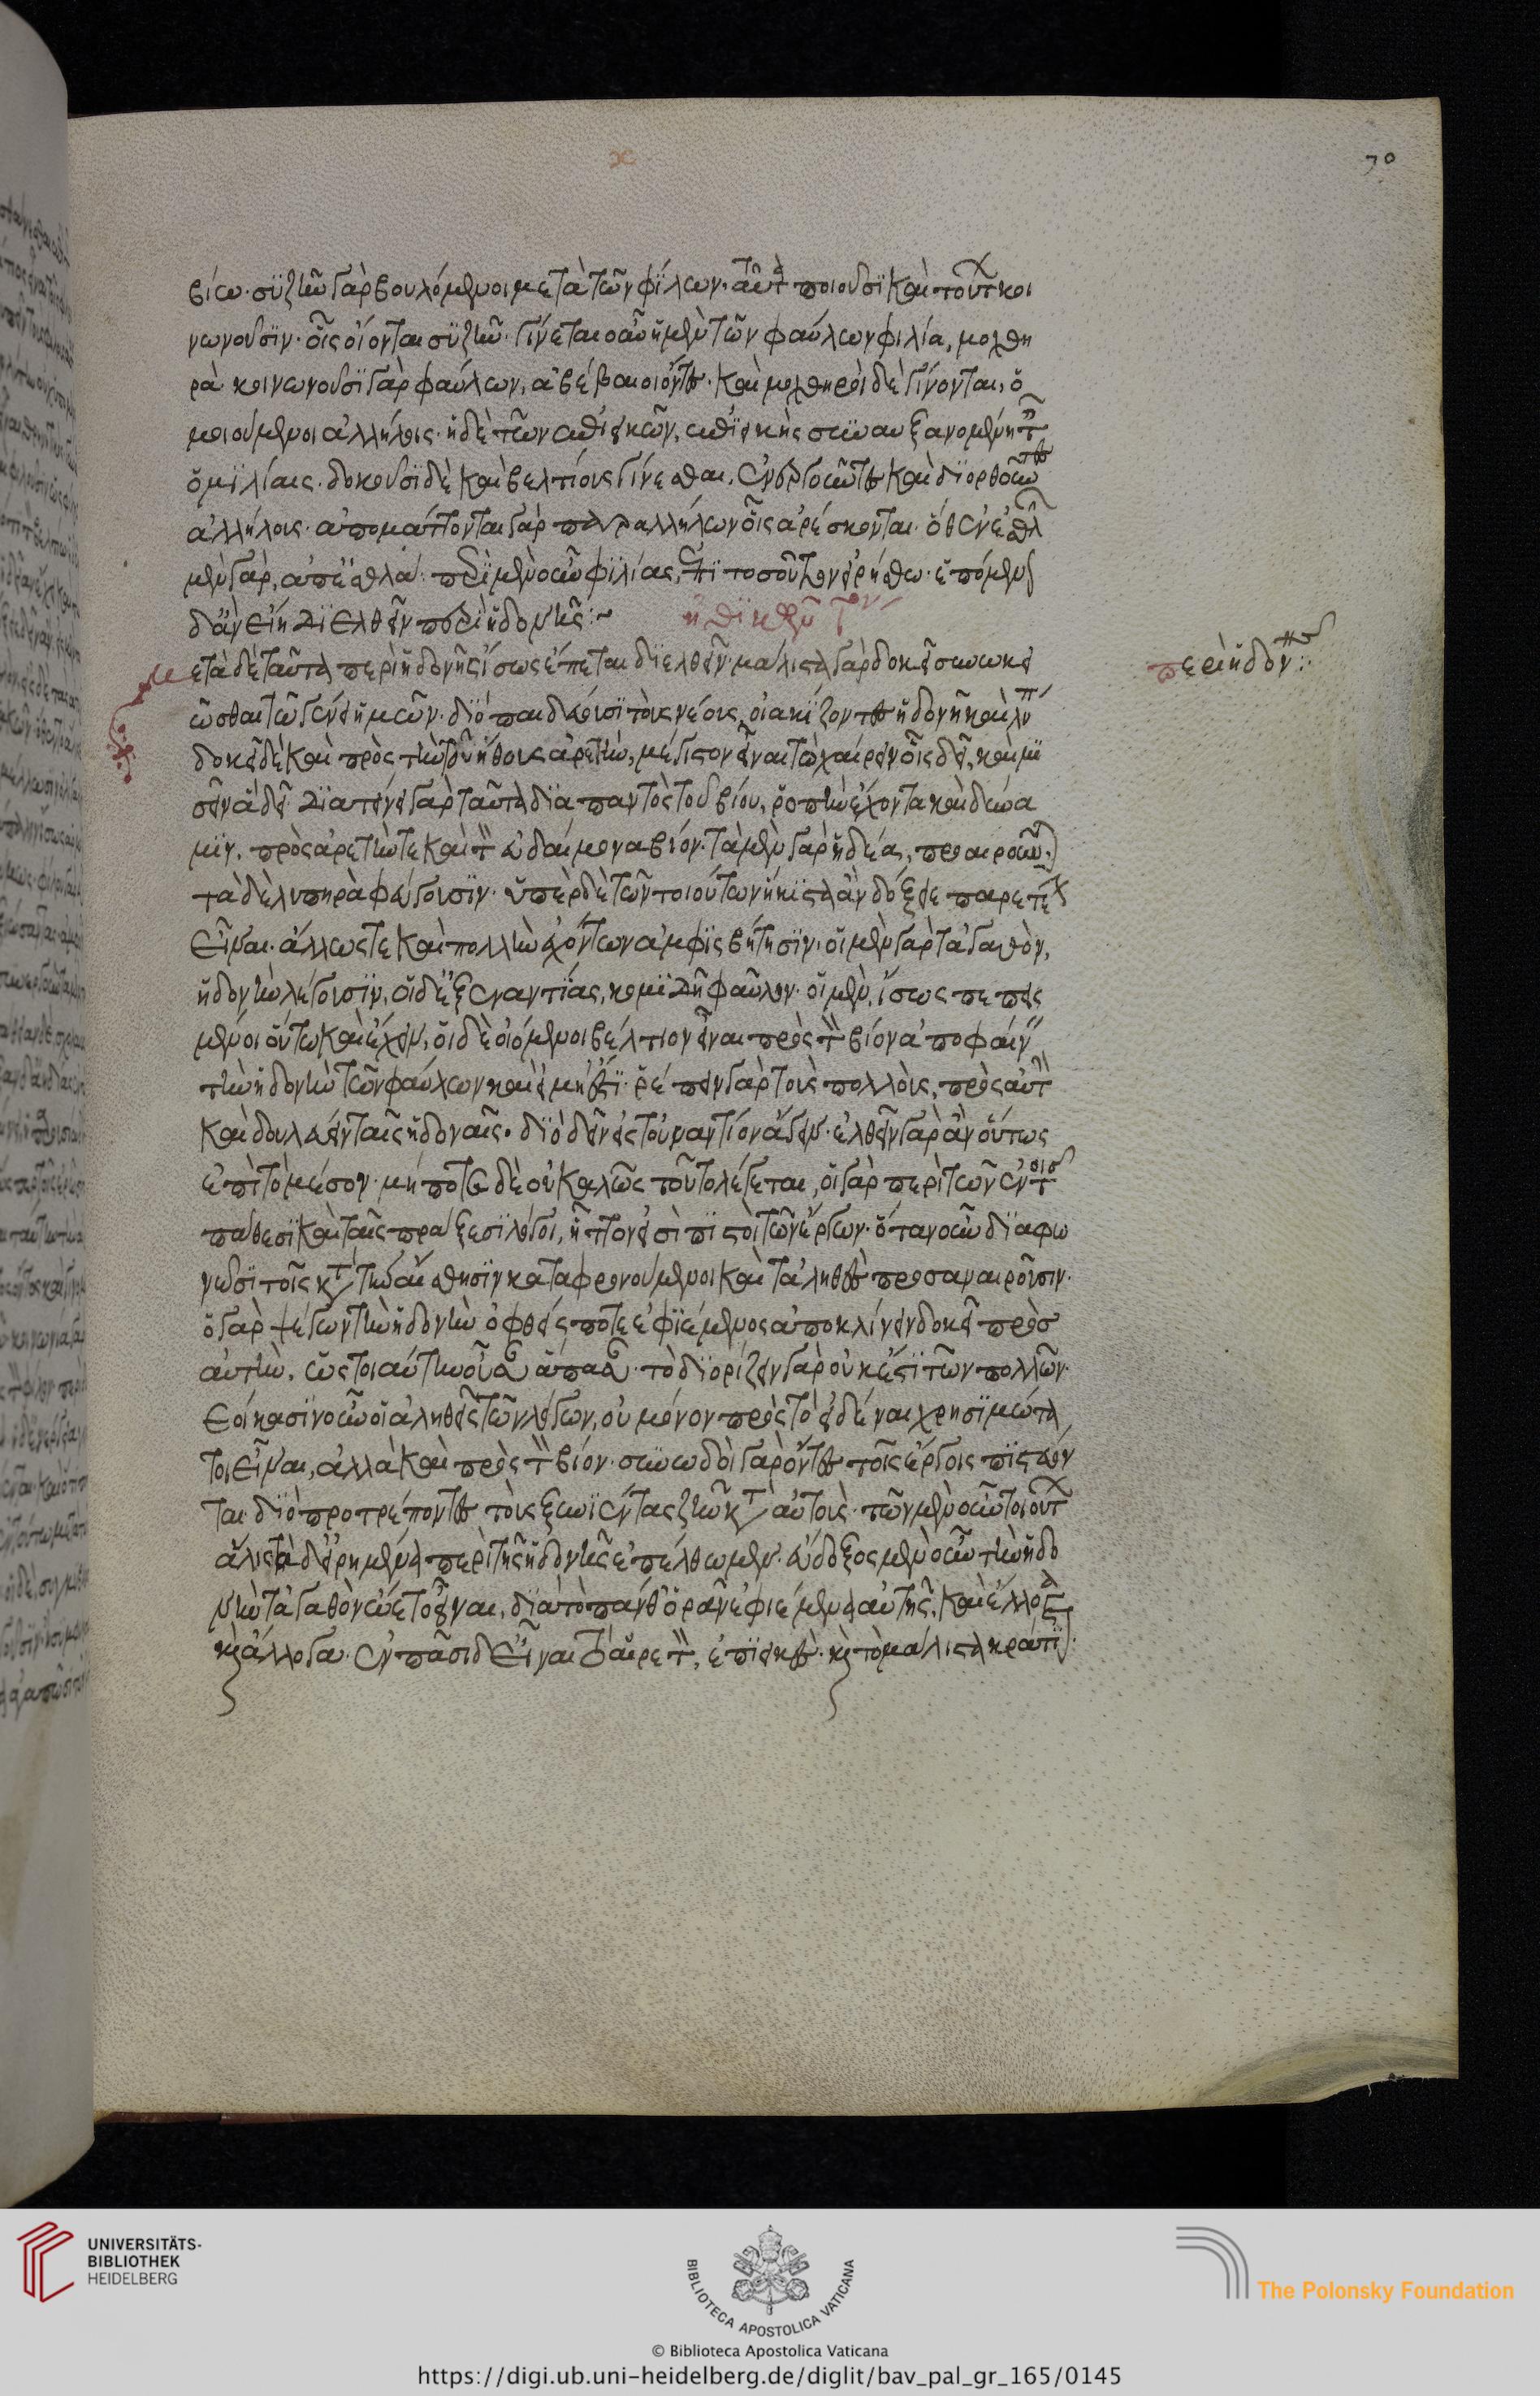 70
βίω· συζῆν γὰρ βουλόμενοι μετὰ τῶν φίλων· ταῦτα ποιοῦσι καὶ τούτων κοι
νωνοῦσιν· οἷς οἴονται συζῆν· γίνεται οὖν ἡ μὲν τῶν φαύλων φιλία, μοχθη
ρὰ κοινωνοῦσι γὰρ φαύλων, ἀβέβαιοι ὄντες· καὶ μοχθηροὶ δὲ γίνονται, ὁ
μοιούμενοι ἀλλήλοις· ἡ δὲ τῶν ἐπιεικῶν, ἐπιεικὴς συναυξανομένη τ
ὁμιλίαις· δοκοῦσι δὲ καὶ βελτίους γίνεσθαι, ἐνεργοῦντες καὶ διορθοῦντες
ἀλλήλους· ἀπομάττονται γὰρ παρ ἀλλήλων οἷς ἀρέσκονται· ὅθεν ἐσθλ
μὲν γὰρ, ἀπ ἐσθλά· περὶ μὲν οὖν φιλίας, ἐπὶ τοσοῦτον εἰρήσθω· ἑπόμενον
δ ἂν εἴη διελθεῖν περὶ ἡδονῆς:~
περὶ ἡδον:·
μετὰ δὲ ταῦτα περὶ ἡδονῆς ἴσως ἕπεται διελθεῖν· μάλιστα γὰρ δοκεῖ συνωκει
ῶσθαι τῶ γένει ἡμῶν· διὸ παιδεύουσι τοὺς νέους, οἰακίζοντες ἡδονῆ καὶ λύπη
δοκεῖ δὲ καὶ πρὸς τὴν τοῦ ἤθους ἀρετὴν, μέγιστον εἶναι τὸ χαίρειν οἷς δεῖ, καὶ μι
σεῖν ἃ δεῖ· διατείνει γὰρ ταῦτα διὰ παντὸς τοῦ βίου, ῥοπὴν ἔχοντα καὶ δύνα
μιν, πρὸς ἀρετήν τε καὶ τὸν εὐδαίμονα βίον· τὰ μὲν γὰρ ἡδέα, προαιροῦνται
τὰ δὲ λυπηρὰ φεύγουσιν· ὑπὲρ δὲ τῶν τοιούτων ἥκιστα ἂν δόξειε παρετέον
εἶναι· ἄλλως τε καὶ πολλὴν ἐχόντων ἀμφισβήτησιν· οἱ μὲν γὰρ τἀγαθὸν,
ἡδονὴν λέγουσιν, οἱ δ ἐξ ἐναντίας, κομιδῆ φαῦλον· οἱ μὲν, ἴσως πεπεισ
μένοι οὕτω καὶ ἔχειν, οἱ δὲ οἰόμενοι βέλτιον εἶναι πρὸς τὸν βίον ἀποφαίν
τὴν ἡδονὴν τῶν φαύλων καὶ εἰ μή ἐστι· ῥέπειν γὰρ τοὺς πολλοὺς, πρὸς αὐτὴν
καὶ δουλεύειν ταῖς ἡδοναῖς· διὸ δεῖν εἰς τοὐναντίον ἄγειν· ἐλθεῖν γὰρ ἂν οὕτως
ἐπὶ τὸ μέσον· μή ποτε δὲ οὐ καλῶς τοῦτο λέγεται, οἱ γὰρ περὶ τῶν ἐν τοῖς
πάθεσι καὶ ταῖς πράξεσι λόγοι, ἧττόν εἰσι πιστοὶ τῶν ἔργων· ὅταν οὖν διαφω
νῶσι τοῖς κατὰ τὴν αἴσθησιν καταφρονούμενοι καὶ τἀληθὲς προσαναιροῦσιν·
ὁ γὰρ ψέγων τὴν ἡδονὴν ὀφθείς ποτε ἐφιέμενος ἀποκλίνειν δοκεῖ πρὸσ
αὐτὴν, ὡς τοιαύτην οὖσαν ἅπασαν· τὸ διορίζειν γὰρ οὐκ ἔστι τῶν πολλῶν·
ἐοίκασιν οὖν οἱ ἀληθεῖς τῶν λόγων, οὐ μόνον πρὸς τὸ εἰδέναι χρησιμώτα
τοι εἶναι, ἀλλὰ καὶ πρὸς τὸν βίον· συνωδοὶ γὰρ ὄντες τοῖς ἔργοις πιστεύον
ται· διὸ προτρέπονται τοὺς ξυνιέντας ζῆν κατ αὐτούς· τῶν μὲν οὖν τοιούτων
ἅλις τὰ δ εἰρημένα περὶ τῆς ἡδονῆς ἐπέλθωμεν· εὔδοξος μὲν οὖν τὴν ἡδο
νὴν τἀγαθὸν ὤετο εἶναι, διὰ τὸ πάνθ ὁρᾶν ἐφιέμενα αὐτῆς, καὶ ἔλλογα
καὶ ἄλογα· ἐν πᾶσι δ εἶναι τὸ αἱρετὸν, ἐπιεικὲς· καὶ τὸ μάλιστα κράτιστον·
UNIVERSITÄTS-
BIBLIOTHEK
HEIDELBERG
BIBLIOTECA APOSTOLICA VATICANA
The Polonsky Foundation
© Biblioteca Apostolica Vaticana
https://digi.ub.uni-heidelberg.de/diglit/bav_pal_gr_165/0145